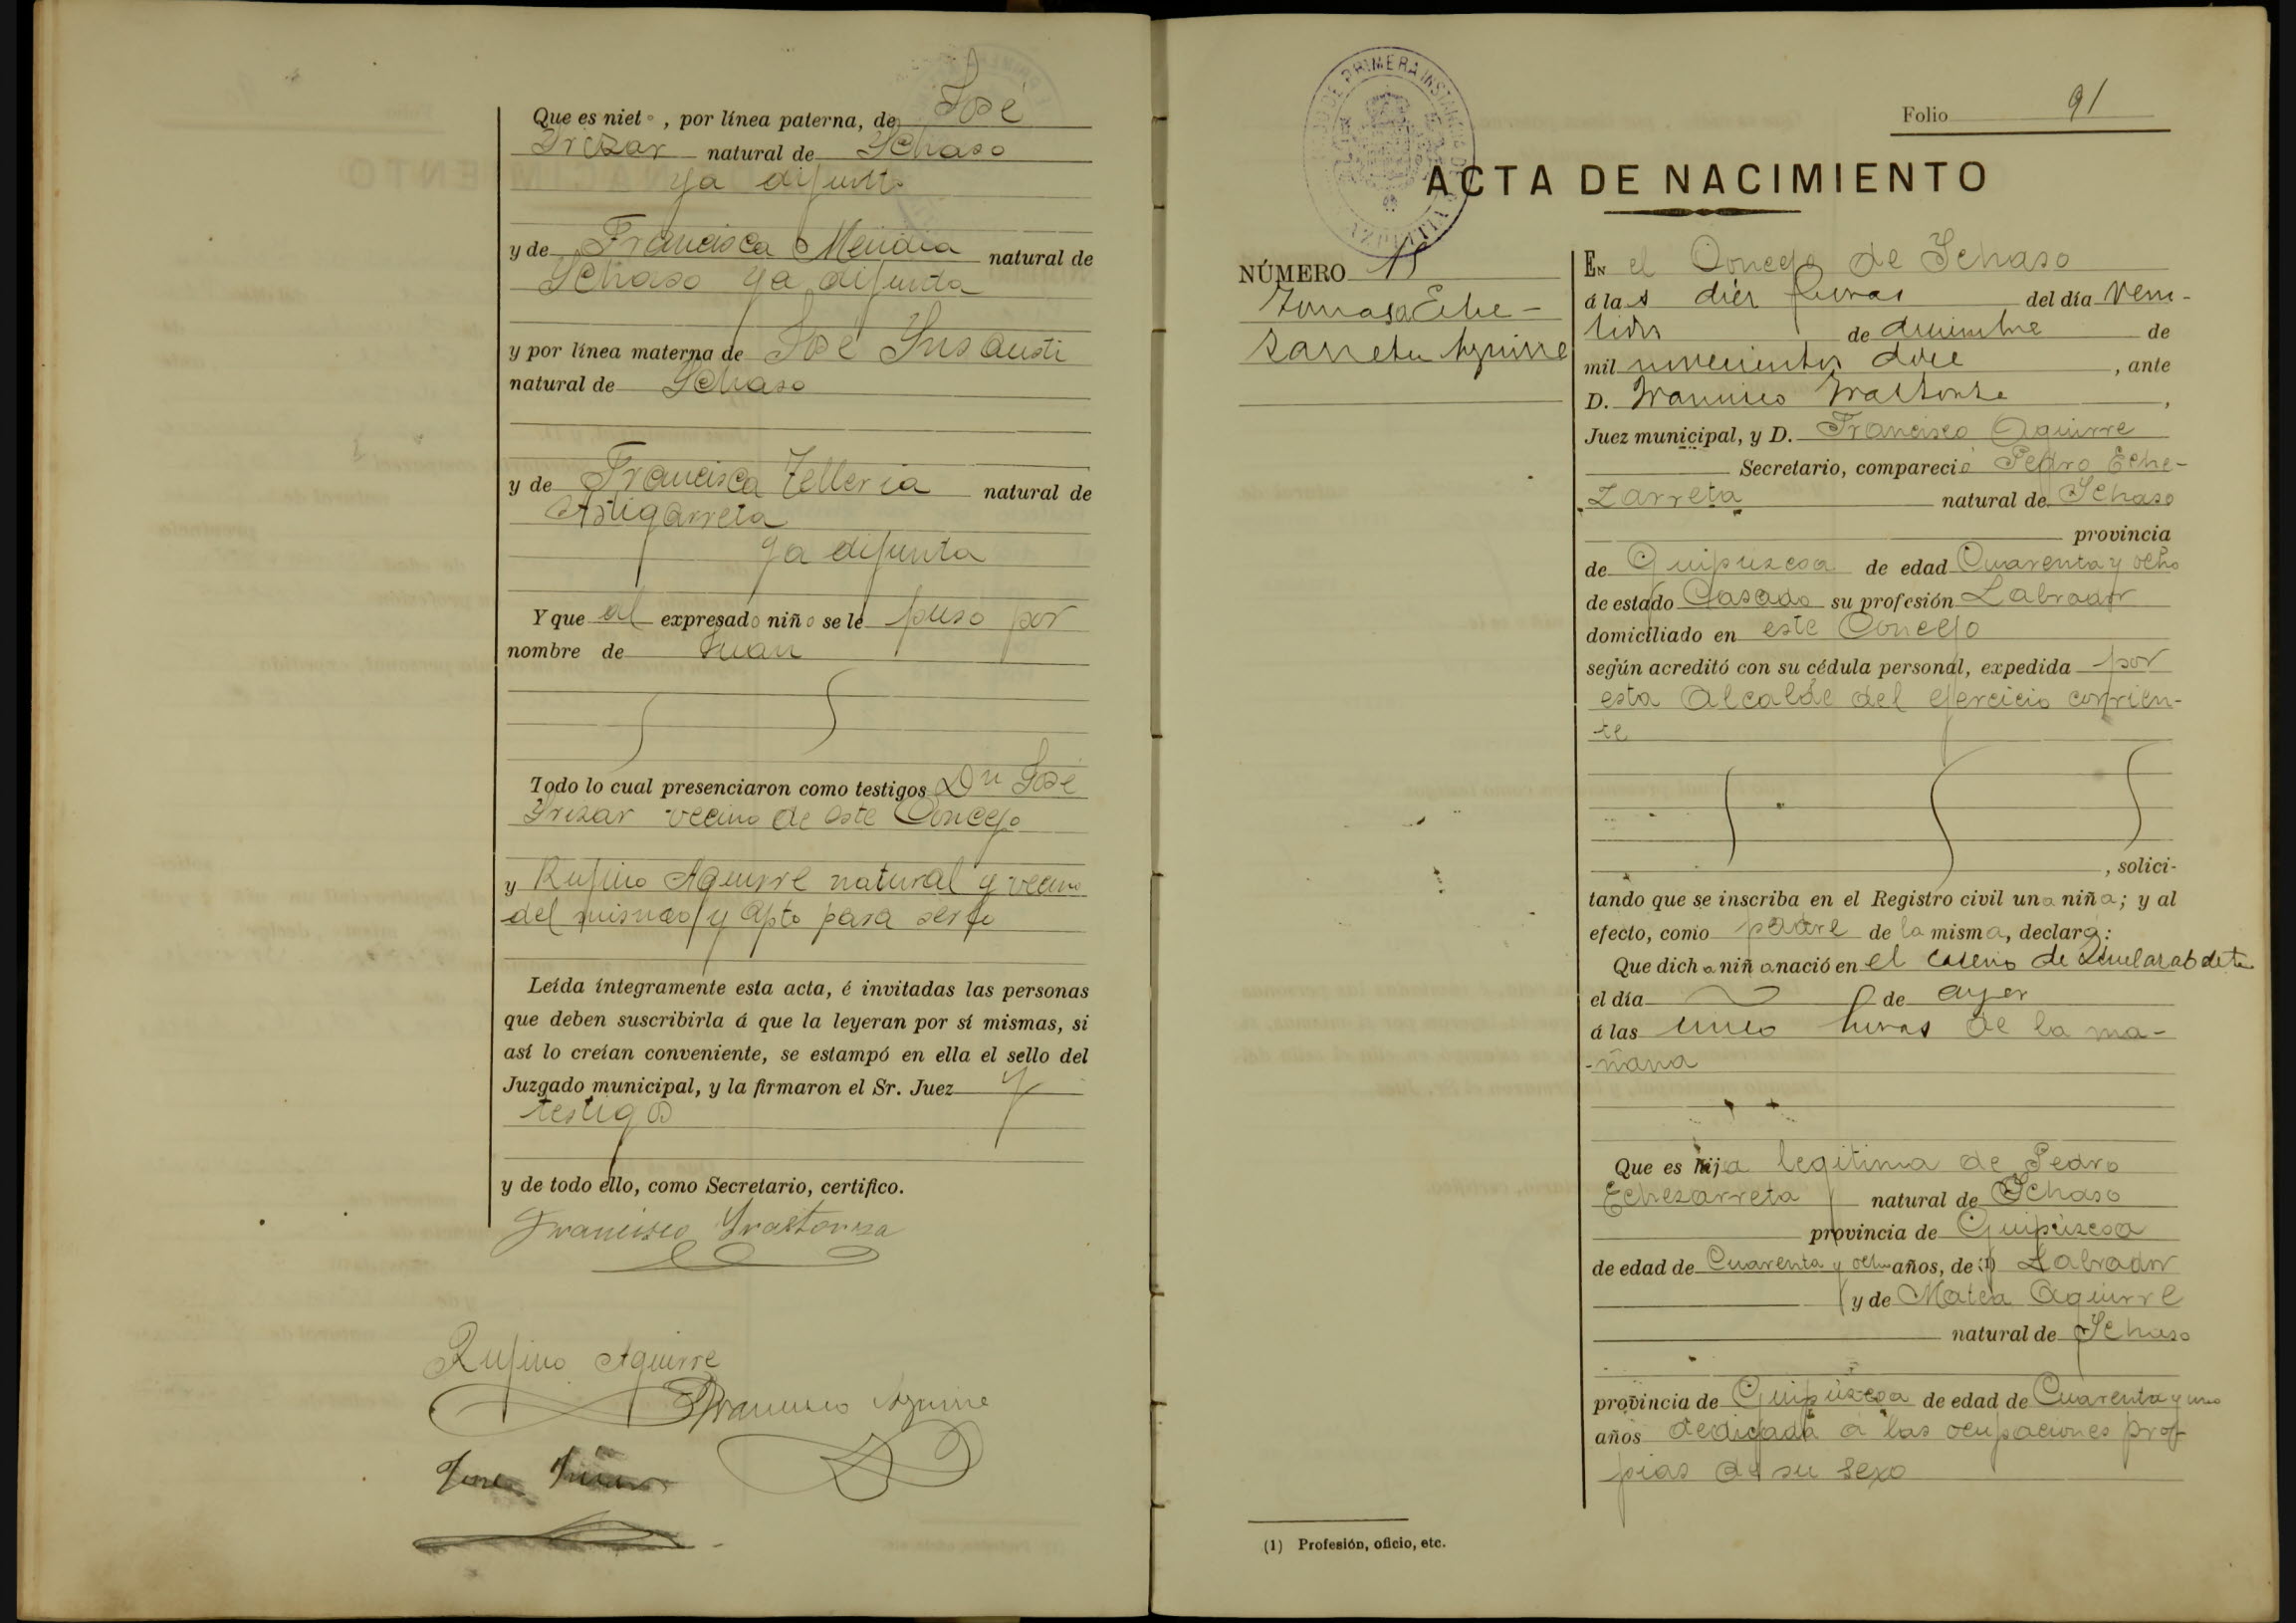 Que es nieto, por línea paterna, de José
Irizar natural de Ichaso
ya difunto
y de Francisca Mendia natural de
Ichaso ya difunta
y por línea materna de José Insausti
natural de Ichaso
y de Francisca Telleria natural de
Astigarreta
ya difunta
Y que al expresado niño se le puso por
nombre de Juan
Todo lo cual presenciaron como testigos Dn José
Irizar vecino de este Concejo
y Rufino Aguirre natural y vecino
del mismo y apto para serlo
Leída íntegramente esta acta, é invitadas las personas
que deben suscribirla á que la leyeran por sí mismas, si
así lo creían conveniente, se estampó en ella el sello del
Juzgado municipal, y la firmaron el Sr. Juez y
testigos
y de todo ello, como Secretario, certifico.
Francisco Irastorza
Rufino Aguirre
Francisco Aguirre
Folio 91
ACTA DE NACIMIENTO
NÚMERO
Tomasa Eche-
zarreta Aguirre
EN el Concejo de Ichaso
á las diez horas del día vein-
tidos de diciembre de
mil novecientos doce, ante
D. Francisco Irastorza,
Juez municipal, y D. Francisco Aguirre
Secretario, compareció Pedro Eche-
zarreta natural de Ichaso
provincia
de Guipúzcoa de edad Cuarenta y ocho
de estado Casado su profesión Labrador
domiciliado en este Concejo
según acreditó con su cédula personal, expedida por
esta Alcalde del ejercicio corrien-
te
, solici-
tando que se inscriba en el Registro civil una niña; y al
efecto, como padre de la misma, declara:
Que dicha niña nació en el caserio de
el día de ayer
á las cinco horas de la ma-
-ñana
Que es hija legitima de Pedro
Echezarreta natural de Ichaso
provincia de Guipúzcoa
de edad de Cuarenta y ocho años, de (1) Labrador
y de Matea Aguirre
natural de Ichaso
provincia de Guipúzcoa de edad de Cuarenta y uno
años dedicada á las ocupaciones pro-
pias de su sexo
(1) Profesión, oficio, etc.